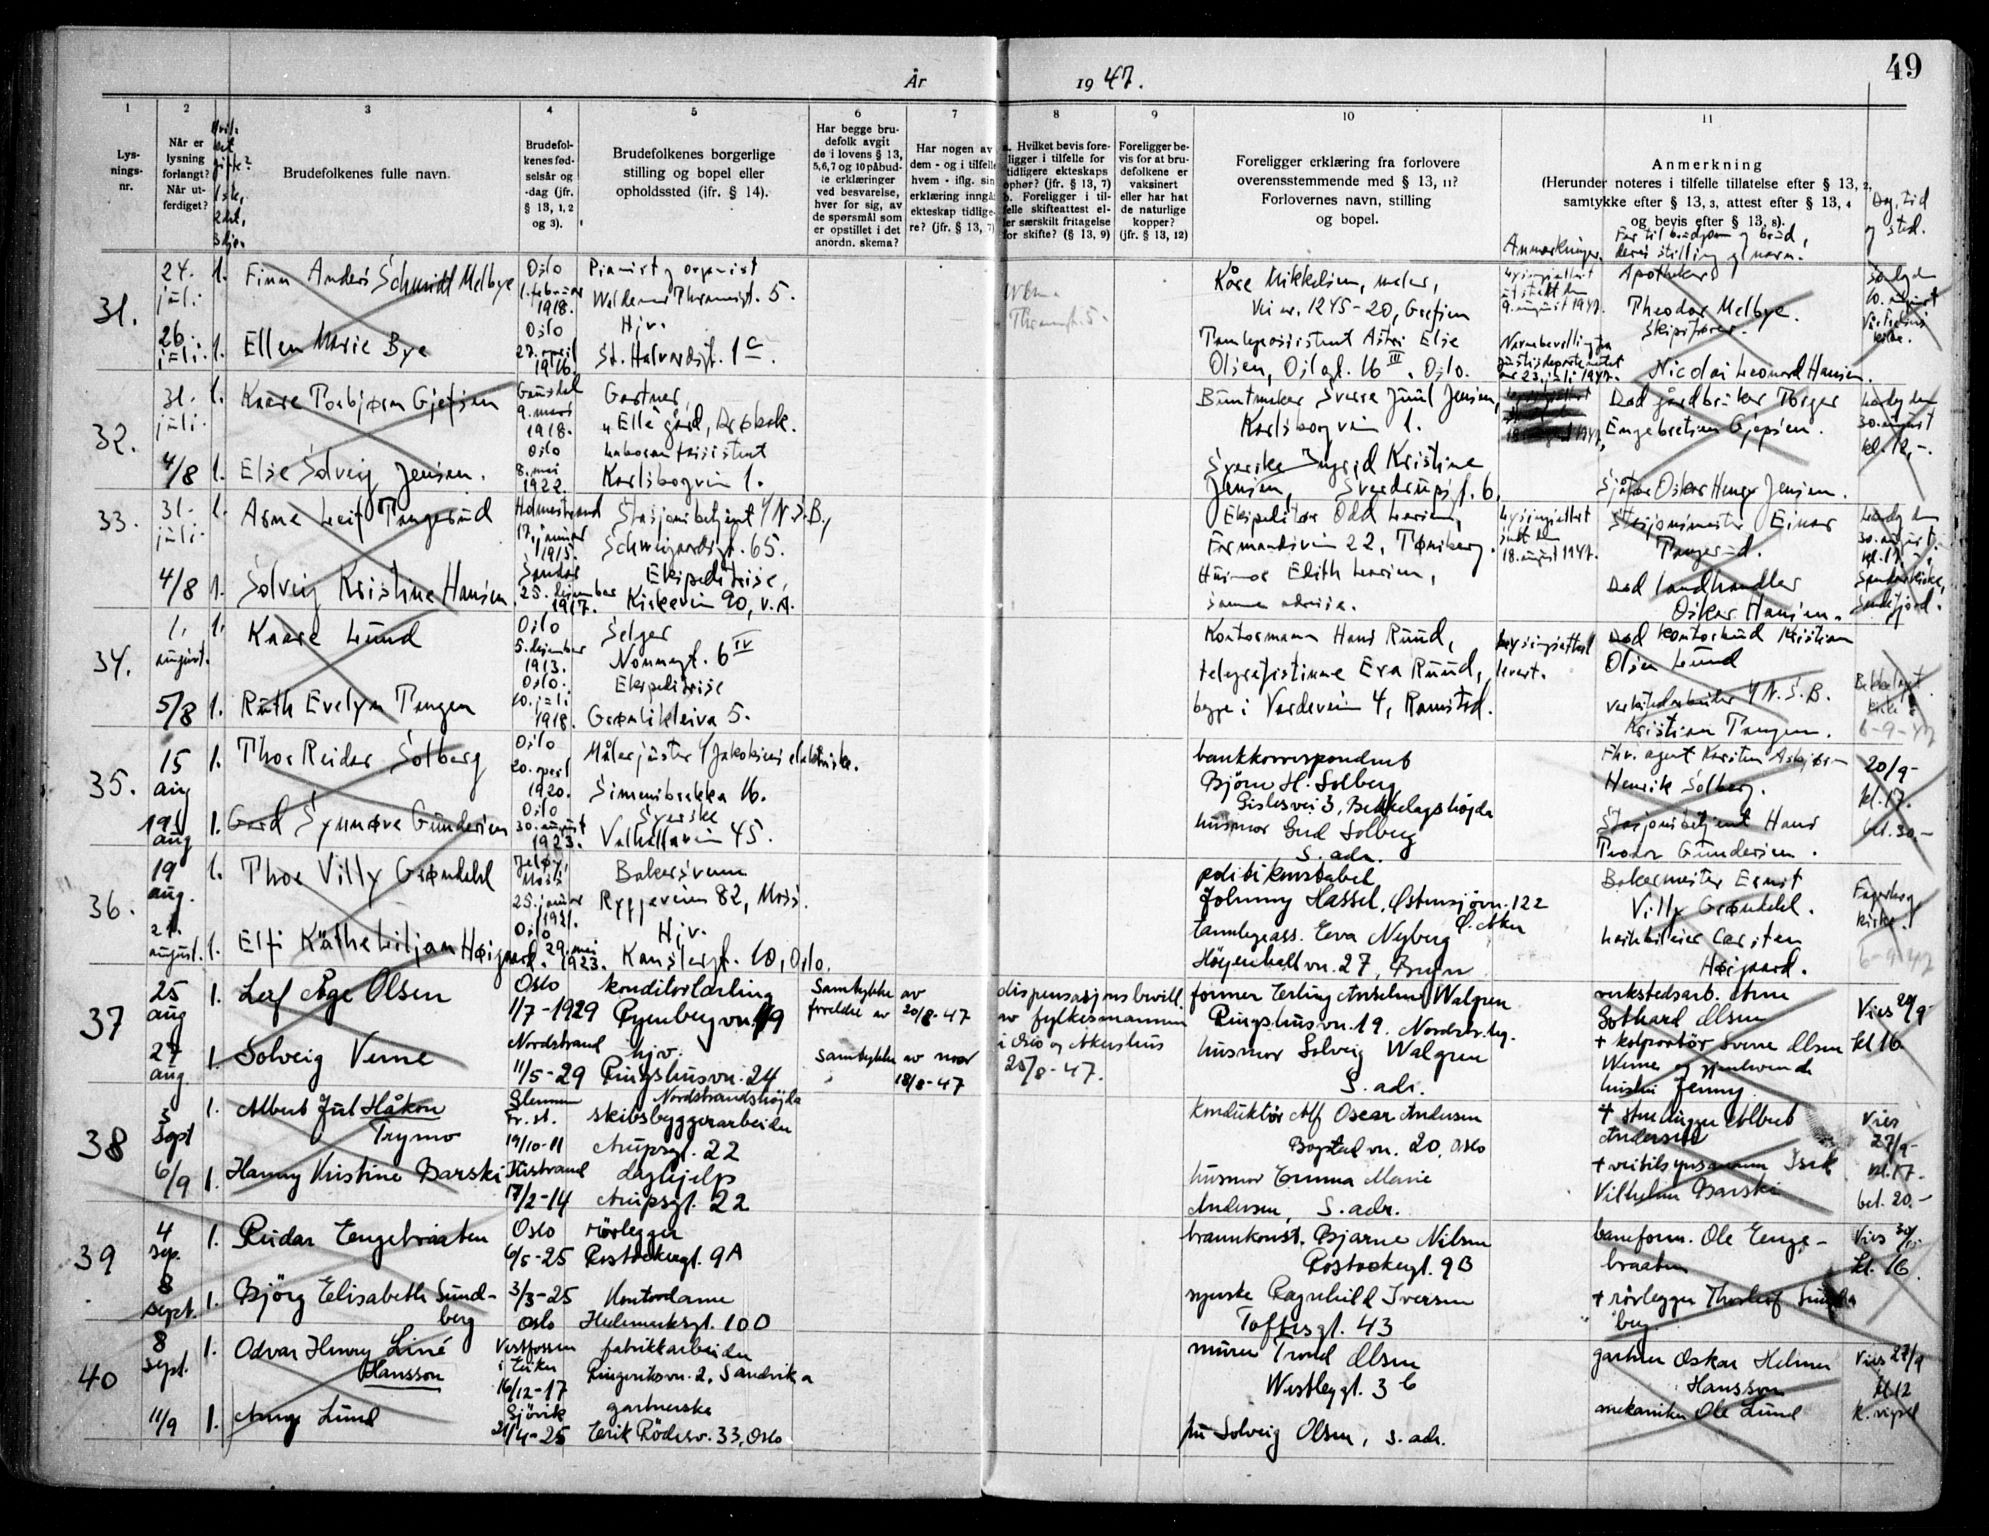 49
År 1947.
1
2
3
4
5
6
7
8
9
10
11
Lys-
nings-
nr.
Når er
lysning
forlangt?
Når ut-
ferdiget?
Brudefolkenes fulle navn.
Brudefol-
kenes fød-
selsår og
-dag (jfr.
§ 13, 1, 2
og 3).
Brudefolkenes borgerlige
stilling og bopel eller
opholdssted (jfr. § 14).
Har begge bru-
defolk avgit
de i lovens § 13,
5,6,7 og 10 påbud-
te erklæringer
ved besvarelse,
hver for sig, av
de spørsmål som
er opstillet i det
anordn. skema?
Har nogen av
dem - og i tilfelle
hvem - iflg. sin
erklæring inngå
ekteskap tidlige-
re? (jfr. § 13, 7)
a. Hvilket bevis fore-
ligger i tilfelle for
tidligere ekteskaps
ophør? (jfr. § 13, 7)
b. Foreligger i til-
felle skifteattest el-
ler særskilt fritagelse
for skifte? (§ 13, 9)
Foreligger be-
vis for at bru-
defolkene er
vaksinert
eller har hat
de naturlige
kopper?
(jfr. § 13, 12)
Foreligger erklæring fra forlovere
overensstemmende med § 13, 11?
Forlovernes navn, stilling
og bopel.
Anmerkninger.
Anmerkning
(Herunder noteres i tilfelle tillatelse efter § 13, 2,
samtykke efter § 13, 3, attest efter § 13, 4
og bevis efter § 13, 8).
Far til brudgom og brud,
deres stilling og navn.
Dag, tid
og sted.
31.
24. juli
1. Finn Anders Schmidt Melbye
Oslo
1. februar
1918.
Pianist og organist
Waldemar Thranesgt. 5.
Kåre Mikkelsen, maler,
Vei nr. 1245-20, Grefsen
9. august 1947.
Apotheker
Theodor Melbye.
26. juli
1. Ellen Marie Bye
Oslo
27. april
1916.
Hjv.
St. Halvardsgt. 1 c
Tannlegeassistent Astri Else
Olsen, Oslogt. 16 III, Oslo.
Navnebevilling fra
justisdepartementet
av 23. juli 1947.
Skipsfører
Nicolai Leonard Hansen.
32.
31. juli
1. Kaare Torbjørn Gjefsen
Gausdal
9. mars
1918.
Gartner,
Elle gård, Drøbak.
Buntmaker Sverre Juul Jensen,
Karlsborgvein 1.
Død gårdbruker Torger
Engebretsen Gjefsen.
Lørdag den
30. august
kl. 12,-.
4/8
1. Else Solveig Jensen.
Oslo
8. mai
1922.
Laboratorieassistent
Karlsborgvein 1.
Syerske Ingrid Kristine
Jensen, Sverdrupsgt. 6.
Sjåfør Oskar Henry Jensen.
33.
31. juli
1. Arne Leif Tangerud
Holmestrand
17. januar
1915.
Stasjonsbetjent v/ N.S.B.,
Schweigaardsgt. 65.
Ekspeditør Odd Larsen,
Farmandsvein 22, Tønsberg.
Lysingsattest
sendt den
18. august 1947.
Stasjonsmester Einar
Tangerud.
Lørdag den
30. august.
4/8
1. Solveig Kristine Hansen
Sandar
25. desember
1917.
Ekspeditrise,
Kirkevein 90, v.A.
Husmor Edith Larsen,
samme adresse.
Død landhandler
Oskar Hansen.
Sandar kirke,
Sandefjord.
34.
1. august.
1. Kaare Lund
Oslo
5. desember
1913.
Selger
Nonnegt. 6 IV
Kontormann Hans Ruud,
telegrafistinne Eva Ruud,
begge i Vardevein 4, Ramstad.
Lysingsattest
levert.
Død kontorbud Kristian
Olsen Lund
5/8
1. Ruth Evelyn Tangen
Oslo.
10. juli
1918.
Ekspeditrise
Grønlikleiva 5.
verkstedarbeider v/ N.S.B.
Kristian Tangen.
Bekkelaget
kirke
6-9-47
35.
15 aug
1. Thor Reidar Solberg
Oslo
20. april
1920.
Målerjuster v/ Jakobsens elektriske.
Simensbrekka 16.
bankkorrespondent
Björn H. Solberg
Gislesvei 3, Bekkelagshögda
Fhv. agent Karsten Asbjørn
Henrik Solberg.
20/9-
kl. 17.
bet. 30.-
19/ aug
1. Gerd Synnøve Gundersen
Oslo
30. august
1923.
Syerske
Valhallavein 45.
husmor Gud Solberg
S. adr.
Stasjonsbetjent Hans
Teodor Gundersen.
36.
19 aug.
1. Thor Villy Grøndahl
Jeløy,
Moss
25. januar
1921.
Bakersvenn
Ryggevein 82, Moss.
politikonstabel
Johnny Hassel, Østensjøvn. 122
Ø. Aker
Bakermester Ernst
Villy Grøndahl.
Fagerborg
kirke.
6-9-47
21. august.
1. Elfi Käthe Liljan Høigaard.
Oslo
29. mai
1923.
Hjv.
Kanslergt. 10, Oslo.
tannlegeass. Eva Nyberg
Höyenhall vn. 27, Bryn
Carsten
Høigaard.
37
25 aug
1. Leif Åge Olsen
Oslo
1/7-1929
konditorlærling
Ryenbergvn. 99
Samtykke av
foreldre av 20/8-47
dispensasjonsbevill.
av fylkesmannen
i Oslo og Akershus
25/8-47.
former Erling Anselm Walgren
Ringshusvn. 19. Nordstr.hg.
verkstedsarb. Arne
Gothard Olsen
Vies 20/9-
kl 16
27 aug.
1. Solveig Verne
Nordstrand
11/5-29
hjv.
Ringshusvn. 24
Nordstrandshögda
Samtykke av mor
18/8-47
husmor Solveig Walgren
S. adr.
+ kolportör Sverre Olsen
Werner og gjenlevende
hustru Jenny
38
5 sept
1. Albert Juel Håkon
Trymo
Glemmen
Fr. st.
19/10-11
skibsbyggerarbeider
Aupsgt. 22
Konduktör Alf Oscar Andersen
Bogstad vn. 20, Oslo
Andersen
Vies
27/9-
kl. 17-
bet. 20.-
6/9
1. Hanny Kristine Barski
17/2-14
daghjelp
Aupsgt. 22
husmor Emma Marie
Andersen, S. adr.
Vilhelm Barski
39
4 sep.
1. Reidar Engebraaten
Oslo
6/5-25
rörlegger
Rostockergt. 9A
brannkonst. Bjarne Nilsen
Rostockergt. 9B
baneform. Ole Enge-
braaten
Kl. 16.
8 sept.
1. Björg Elisabeth Sund-
berg
3/3-25
Oslo
Kontordame
Hedemarksgt. 10 D
syerske Ragnhild Iversen
Toftesgt. 43
+ rörlegger Thorleif Sund-
berg.
40
8 sept.
1. Odvar Henry Liné
Hansson
Vestfossen
i Eiker
16/12-17
fabrikkarbeider
Ringeriksvn. 2, Sandvika
murer Trond Olsen
Westbyegt. 3 c
gartner Oskar Helmer
Hansson
Vies 27/9
kl 12
11/9
1. Aung Lund
Gjövik
21/4-25
gartnerske
Eirik Rödesv. 33, Oslo
fru Solveig Olsen, s. adr.
mekaniker Ole Lund